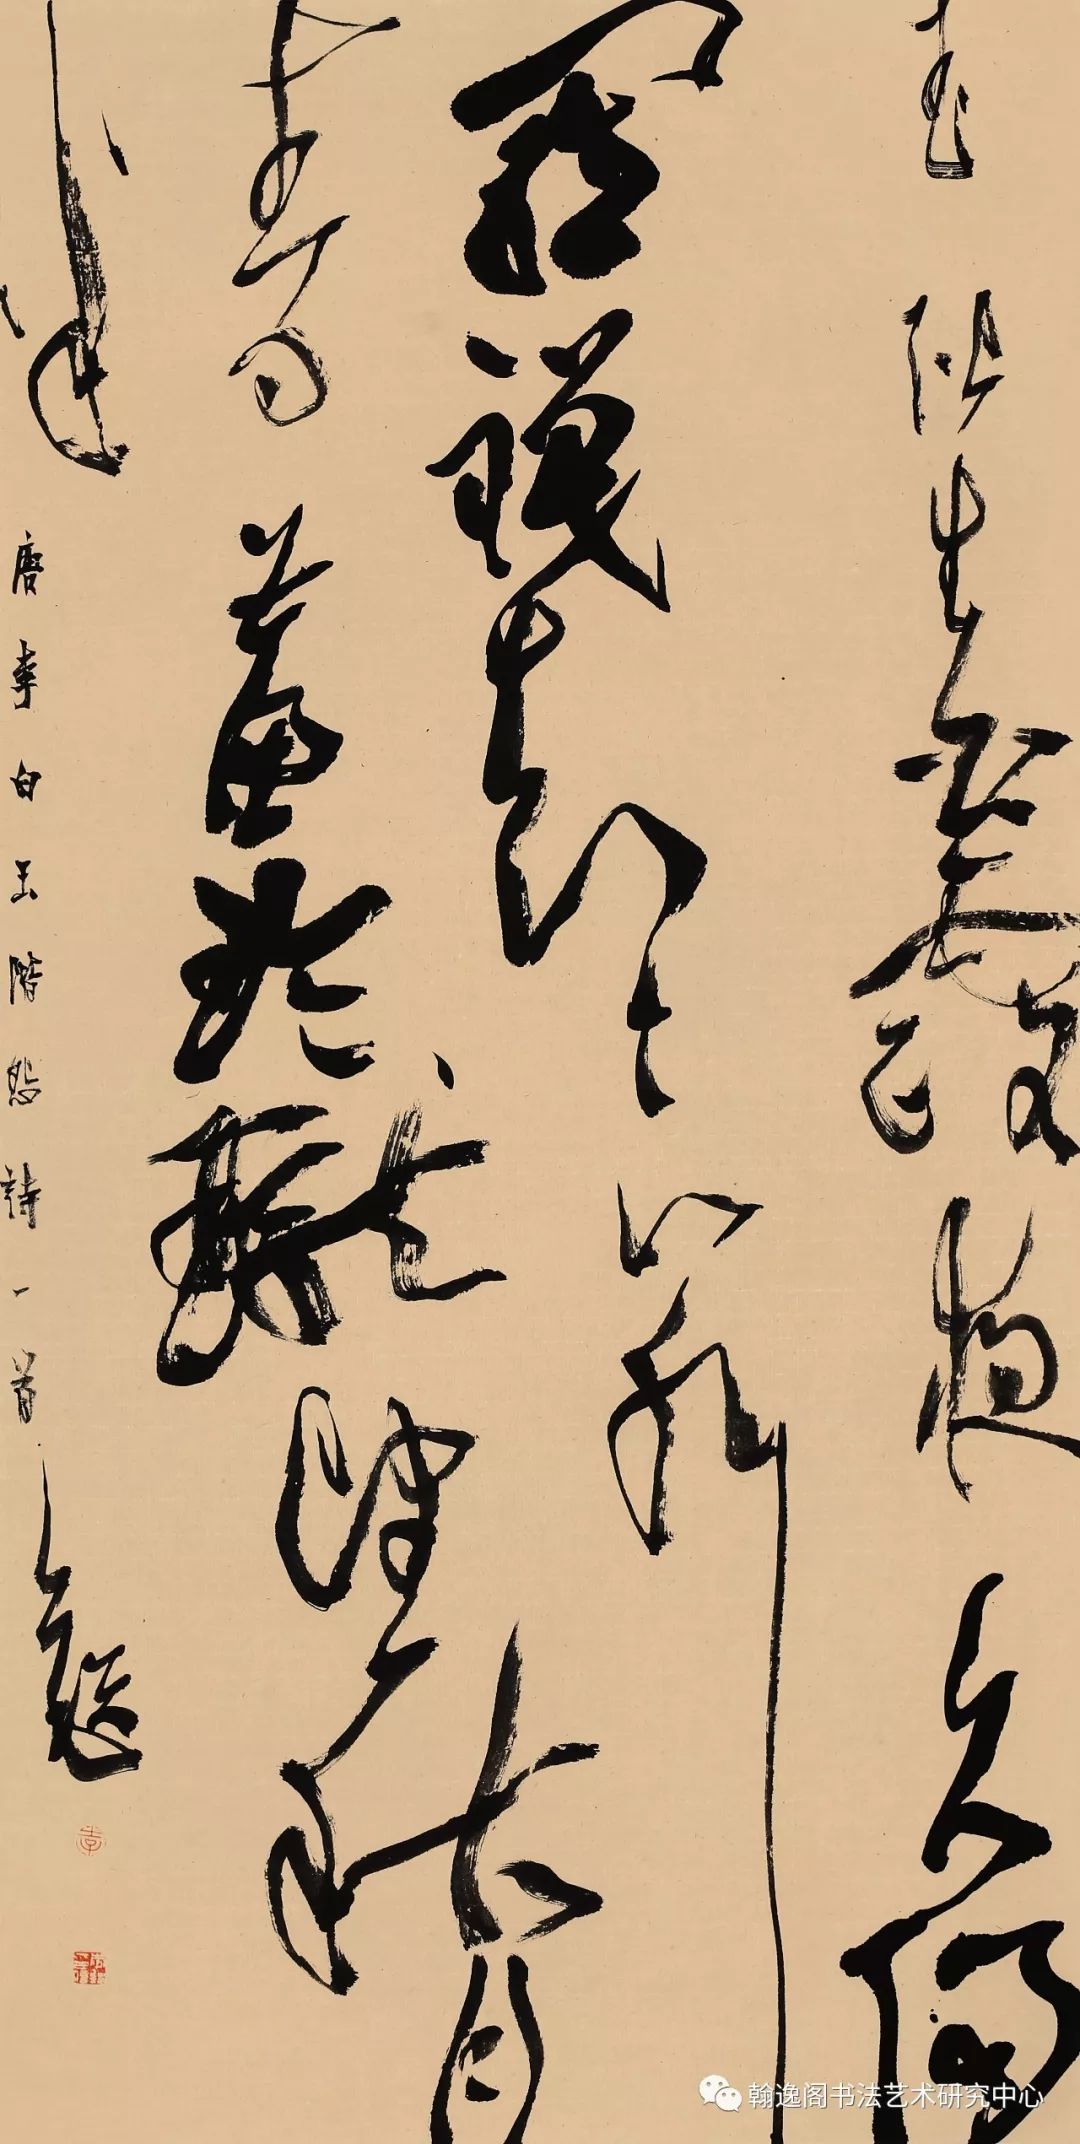 玉階生白露夜久侵
羅襪却下水
精簾玲瓏望秋月
唐李白玉階怨詩一首
翰逸阁书法艺术研究中心